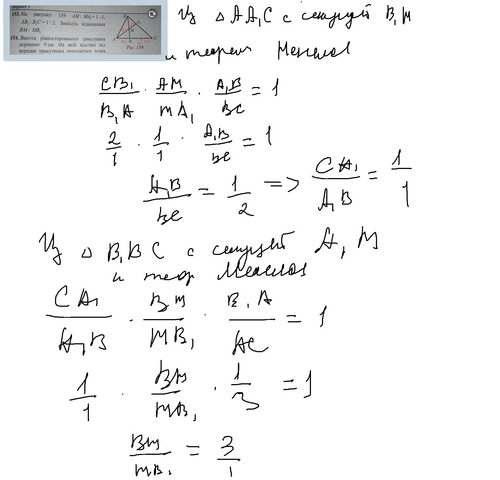 153. На рисунку 159 AM : MA₁ = 1 : 1,
AB₁ : B₁C = 1 : 2. Знайдіть відношення
BM : MB₁.
154. Висота рівностороннього трикутника
дорівнює 9 см. На якій відстані від
вершин трикутника знаходиться точка
Рис. 159
Из △ AA₁C с секущей B₁M
и теорем Менелая
CB₁/B₁A · AM/MA₁ · A₁B/BC = 1
2/1 · 1/1 · A₁B/BC = 1
A₁B/BC = 1/2 => CA₁/A₁B = 1/1
Из △ B₁BC с секущей A₁M
и теор Менелая
CA₁/A₁B · BM/MB₁ · B₁A/AC = 1
1/1 · BM/MB₁ · 1/3 = 1
BM/MB₁ = 3/1